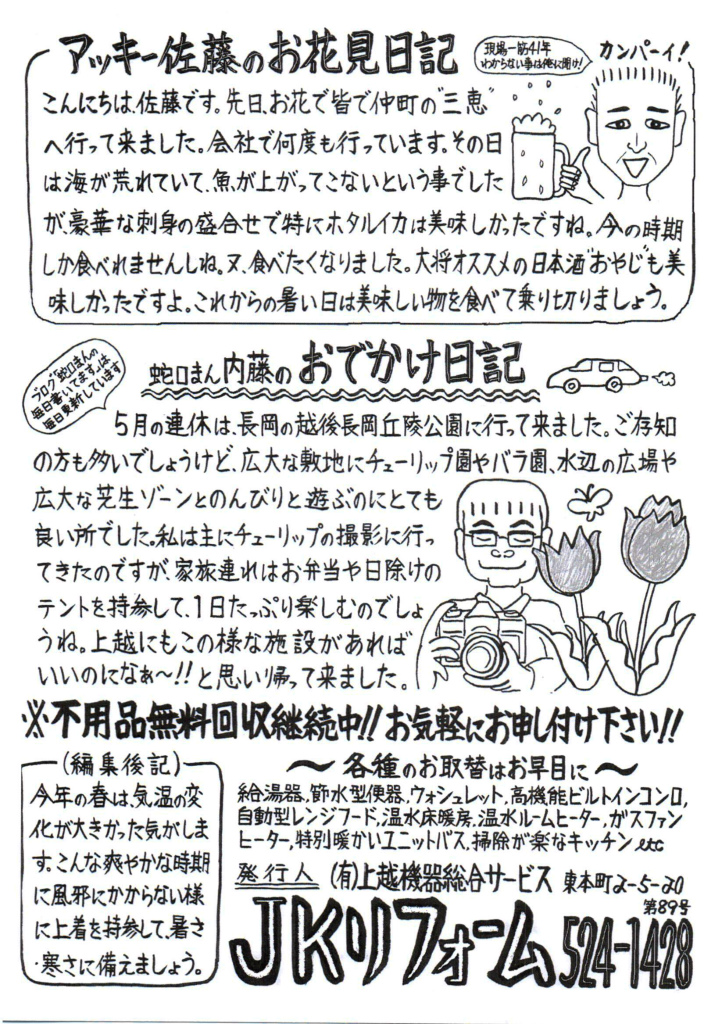 アッキー佐藤のお花見日記
現場一筋41年
わからない事は俺に聞け!
カンパーイ!
こんにちは、佐藤です。先日、お花で皆で仲町の"三恵"
へ行って来ました。会社で何度も行っています。その日
は海が荒れていて、魚が上がってこないという事でした
が、豪華な刺身の盛合せで特にホタルイカは美味しかったですね。今の時期
しか食べれませんしね。又、食べたくなりました。大将オススメの日本酒"おやじ"も美
味しかったですよ。これからの暑い日は美味しい物を食べて乗り切りましょう。
ブログ"蛇口まんの
毎日書いてます。"は
毎日更新しています
蛇口まん内藤のおでかけ日記
5月の連休は、長岡の越後長岡丘陵公園に行って来ました。ご存知
の方も多いでしょうけど、広大な敷地にチューリップ園やバラ園、水辺の広場や
広大な芝生ゾーンとのんびりと遊ぶのにとても
良い所でした。私は主にチューリップの撮影に行っ
てきたのですが、家族連れはお弁当や日除けの
テントを持参して、1日たっぷり楽しむのでしょ
うね。上越にもこの様な施設があれば
いいのになぁ〜!!と思い帰って来ました。
※不用品無料回収継続中!!お気軽にお申し付け下さい!!
(編集後記)
今年の春は、気温の変
化が大きかった気がしま
す。こんな爽やかな時期
に風邪にかからない様
に上着を持参して、暑さ
・寒さに備えましょう。
〜各種のお取替はお早目に〜
給湯器,節水型便器,ウォシュレット,高機能ビルトインコンロ,
自動型レンジフード,温水床暖房,温水ルームヒーター,ガスファン
ヒーター,特別暖かいユニットバス,掃除が楽なキッチンetc
発行人 (有)上越機器総合サービス 東本町2-5-20
第89号
JKリフォーム524-1428